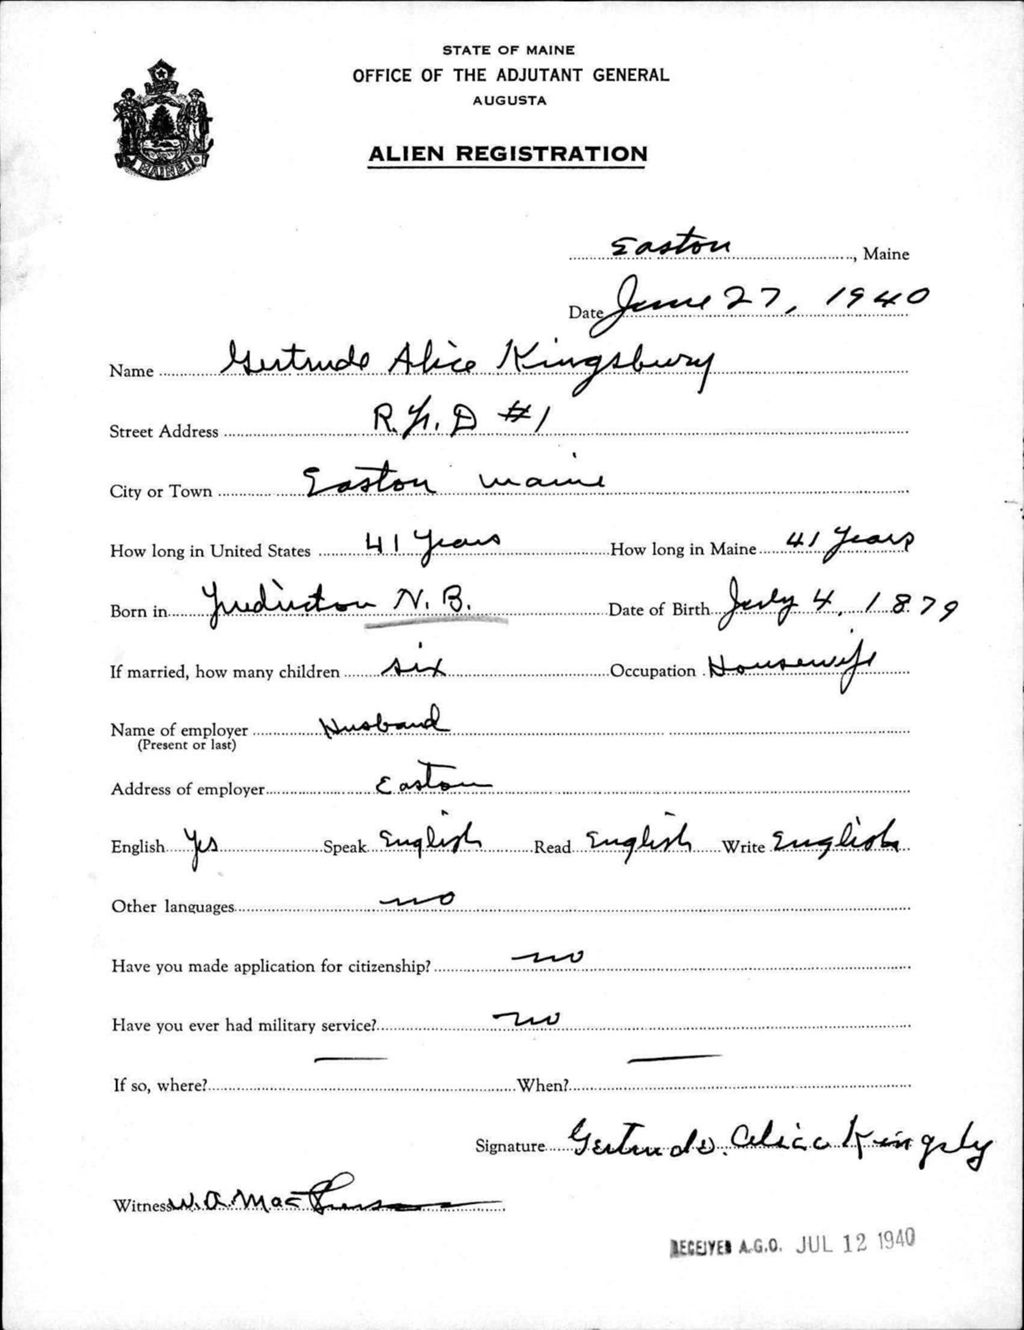 STATE OF MAINE
OFFICE OF THE ADJUTANT GENERAL
AUGUSTA
ALIEN REGISTRATION
MAINE
Easton, Maine
Date June 27, 1940
Name Gertrude Alice Kingsbury
Street Address R.F.D #1
City or Town Easton Maine
How long in United States 41 Years How long in Maine 41 Years
Born in Fredricton N.B. Date of Birth July 4, 1879
If married, how many children six Occupation Housewife
Name of employer Husband
(Present or last)
Address of employer Easton
English Yes Speak English Read English Write English
Other languages no
Have you made application for citizenship? no
Have you ever had military service? no
If so, where? — When? —
Signature Gertrude. Alice Kingsly
Witness W. A. MacPherson
RECEIVED A.G.O. JUL 12 1940